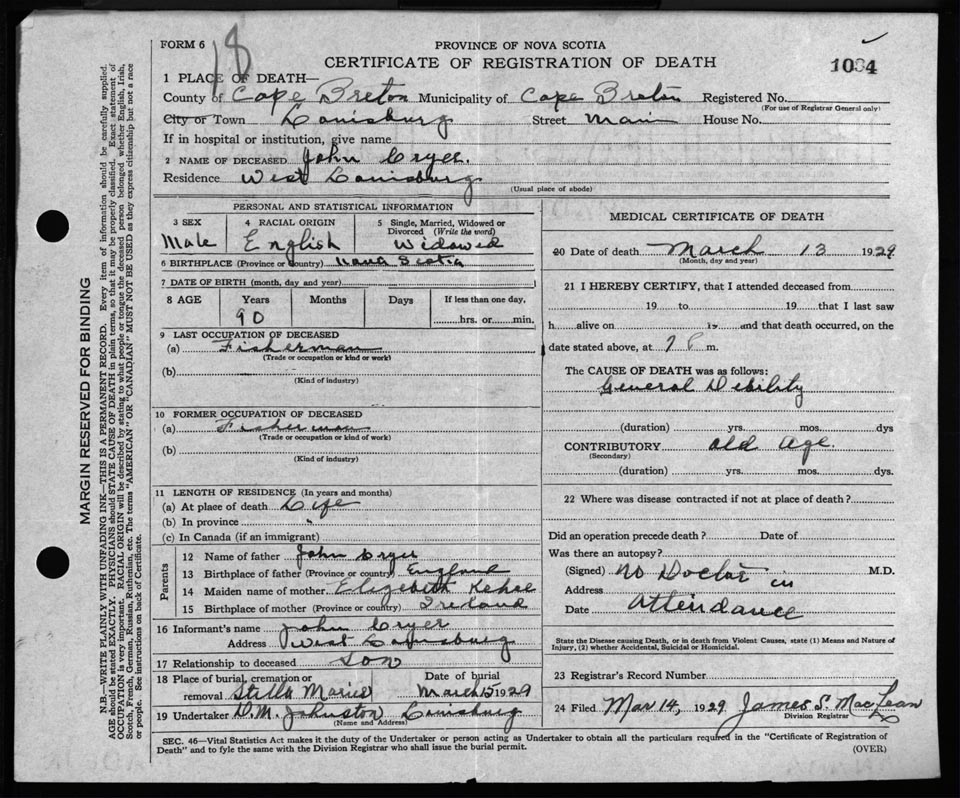 FORM 6
18
PROVINCE OF NOVA SCOTIA
CERTIFICATE OF REGISTRATION OF DEATH
1084
1 PLACE OF DEATH—
County of Cape Breton Municipality of Cape Breton Registered No.
(For use of Registrar General only)
City or Town Louisburg Street Main House No.
If in hospital or institution, give name
2 NAME OF DECEASED John Cryer.
Residence West Louisburg
(Usual place of abode)
PERSONAL AND STATISTICAL INFORMATION
3 SEX
Male
4 RACIAL ORIGIN
English
5 Single, Married, Widowed or
Divorced (Write the word)
Widowed
6 BIRTHPLACE (Province or country) Nova Scotia
7 DATE OF BIRTH (month, day and year)
8 AGE Years Months Days If less than one day,
90 hrs. or min.
9 LAST OCCUPATION OF DECEASED
(a) Fisherman
(Trade or occupation or kind of work)
(b)
(Kind of industry)
10 FORMER OCCUPATION OF DECEASED
(a) Fisherman
(Trade or occupation or kind of work)
(b)
(Kind of industry)
11 LENGTH OF RESIDENCE (In years and months)
(a) At place of death Life
(b) In province "
(c) In Canada (if an immigrant)
Parents
12 Name of father John Cryer
13 Birthplace of father (Province or country) England
14 Maiden name of mother Elizabeth Kehoe
15 Birthplace of mother (Province or country) Ireland
16 Informant's name John Cryer
Address West Louisburg
17 Relationship to deceased Son
18 Place of burial, cremation or Date of burial
removal Stella Maries March 15 1929
19 Undertaker D.M. Johnston Louisburg
(Name and Address)
MEDICAL CERTIFICATE OF DEATH
20 Date of death March 13 1929
(Month, day and year)
21 I HEREBY CERTIFY, that I attended deceased from
19 to 19 that I last saw
h alive on 19 and that death occurred, on the
date stated above, at 7 P m.
The CAUSE OF DEATH was as follows:
General Debility
(duration) yrs. mos. dys
CONTRIBUTORY old age
(Secondary)
(duration) yrs. mos. dys.
22 Where was disease contracted if not at place of death?
Did an operation precede death? Date of
Was there an autopsy?
(Signed) No Doctor in M.D.
Address
Date Attendance
State the Disease causing Death, or in death from Violent Causes, state (1) Means and Nature of
Injury, (2) whether Accidental, Suicidal or Homicidal.
23 Registrar's Record Number
24 Filed Mar 14, 1929 James S. MacLean
Division Registrar
SEC. 46—Vital Statistics Act makes it the duty of the Undertaker or person acting as Undertaker to obtain all the particulars required in the "Certificate of Registration of
Death" and to fyle the same with the Division Registrar who shall issue the burial permit.
(OVER)
MARGIN RESERVED FOR BINDING
N.B.—WRITE PLAINLY WITH UNFADING INK—THIS IS A PERMANENT RECORD. Every item of information should be carefully supplied.
AGE should be stated EXACTLY. PHYSICIANS should STATE CAUSE OF DEATH in plain terms, so that it may be properly classified. Exact statement of
OCCUPATION is very important. RACIAL ORIGIN will be described by stating to what people or tongue the deceased person belonged whether English, Irish,
Scotch, French, German, Russian, Ruthenian, etc. The terms "AMERICAN" OR "CANADIAN" MUST NOT BE USED as they express citizenship but not a race
or people. See instructions on back of Certificate.